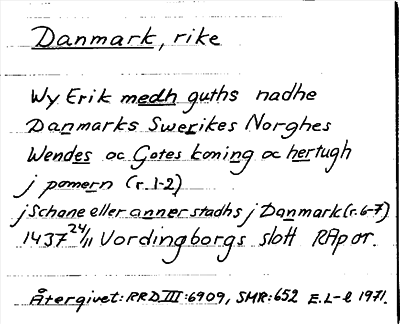 Danmark, rike
Wy Erik medh guths nadhe
Danmarks Swerikes Norghes
Wendes oc Gotes koning oc hertugh
j pomern (r. 1-2)
j Schane eller annerstadhs j Danmark (r. 6-7)
1437 24/11 Vordingborgs slott RAp or.
Återgivet: RRD III: 6909, SMR: 652 E. L-l 1971.